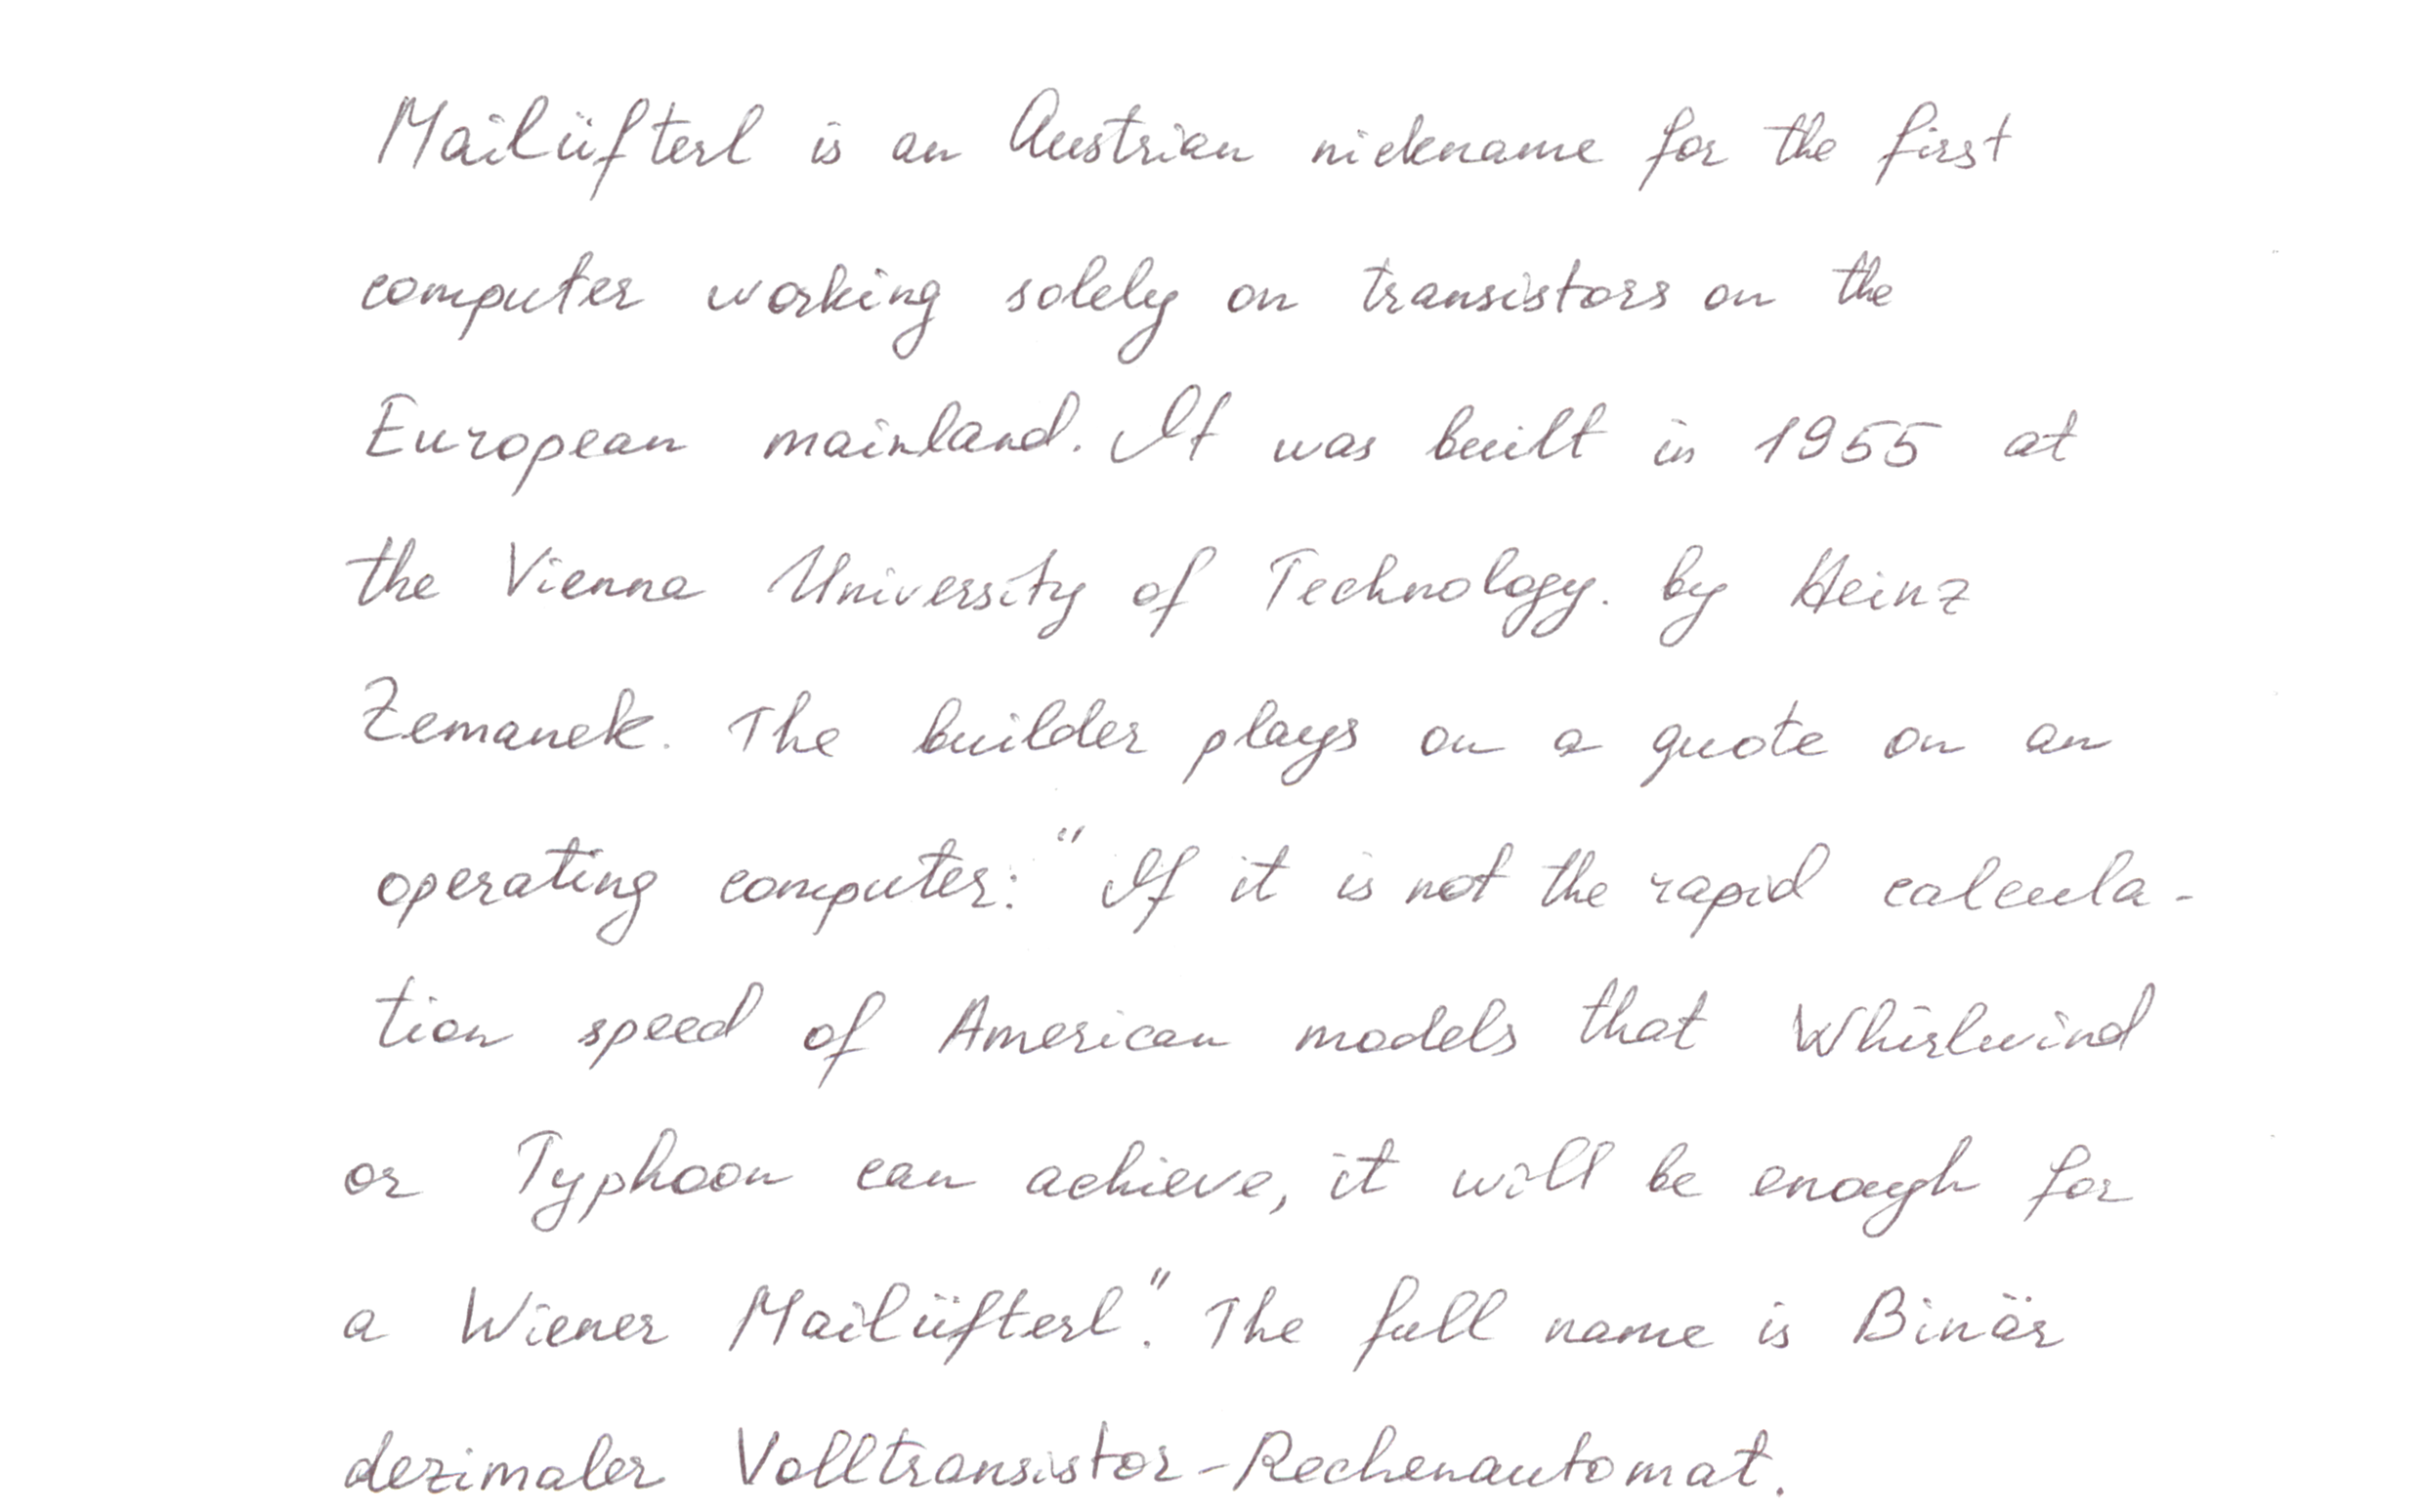 Mailüfterl is an Austrian nickname for the first
computer working solely on transistors on the
European mainland. It was built in 1955 at
the Vienna University of Technology. by Heinz
Zemanek. The builder plays on a quote on an
operating computer: "If it is not the rapid calcula-
tion speed of American models that Whirlwind
or Typhoon can achieve, it will be enough for
a Wiener Mailüfterl". The full name is Binär
dezimaler Volltransistor-Rechenautomat.